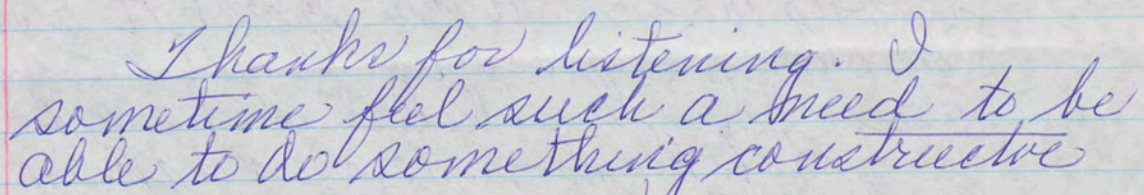 Thanks for listening. I
sometime feel such a need to be
able to do something constructive